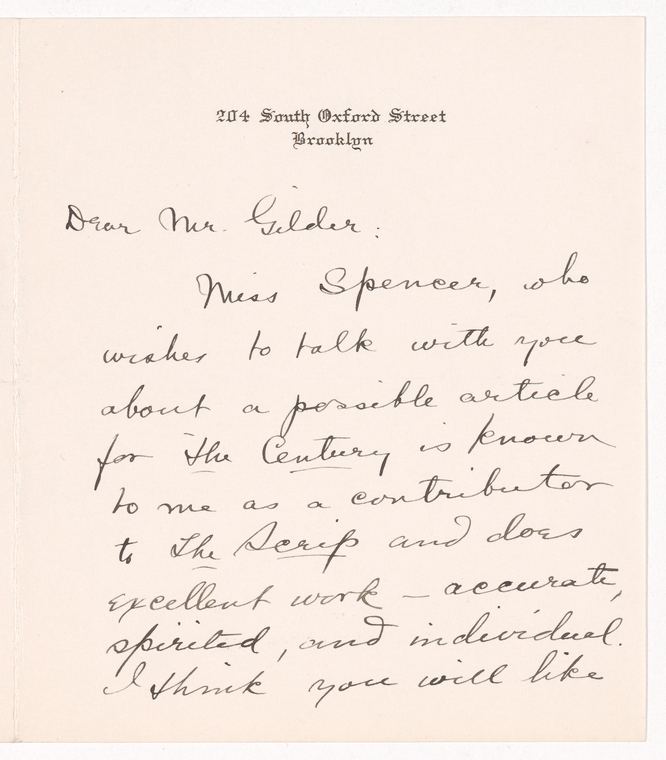 204 South Oxford Street
Brooklyn
Dear Mr. Gilder:
Miss Spencer, who
wishes to talk with you
about a possible article
for The Century is known
to me as a contributor
to The Scrip and does
excellent work – accurate,
spirited, and individual.
I think you will like